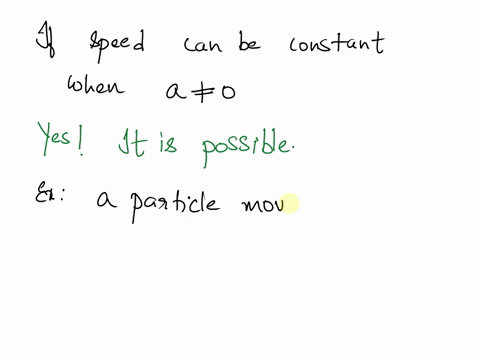 If speed can be constant
when a ≠ 0
Yes! It is possible.
Ex: a particle mov